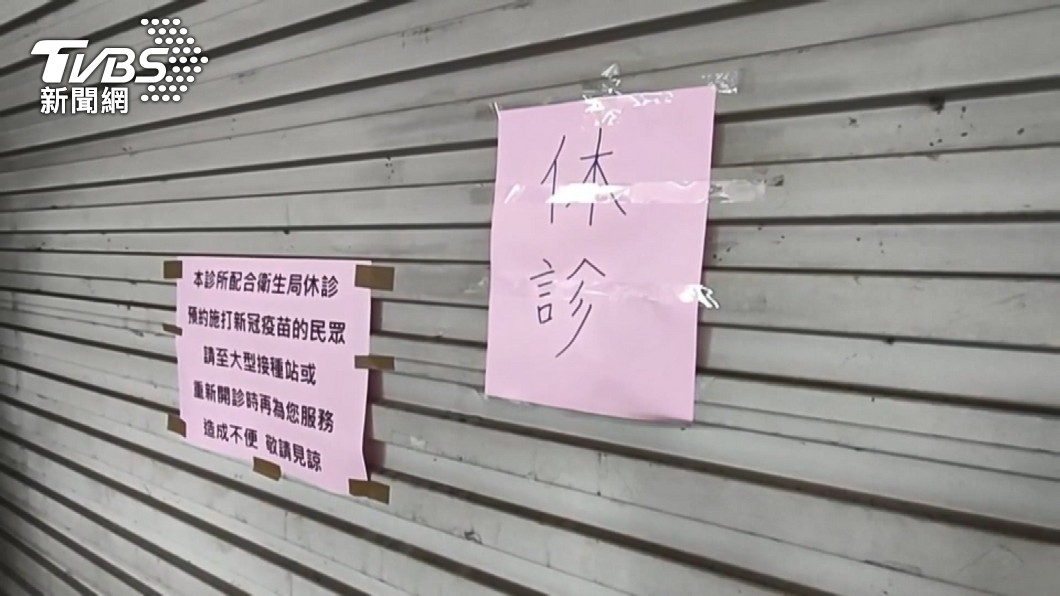 TVBS
新聞網
休
診
本診所配合衛生局休診
預約施打新冠疫苗的民眾
請至大型接種站或
重新開診時再為您服務
造成不便 敬請見諒